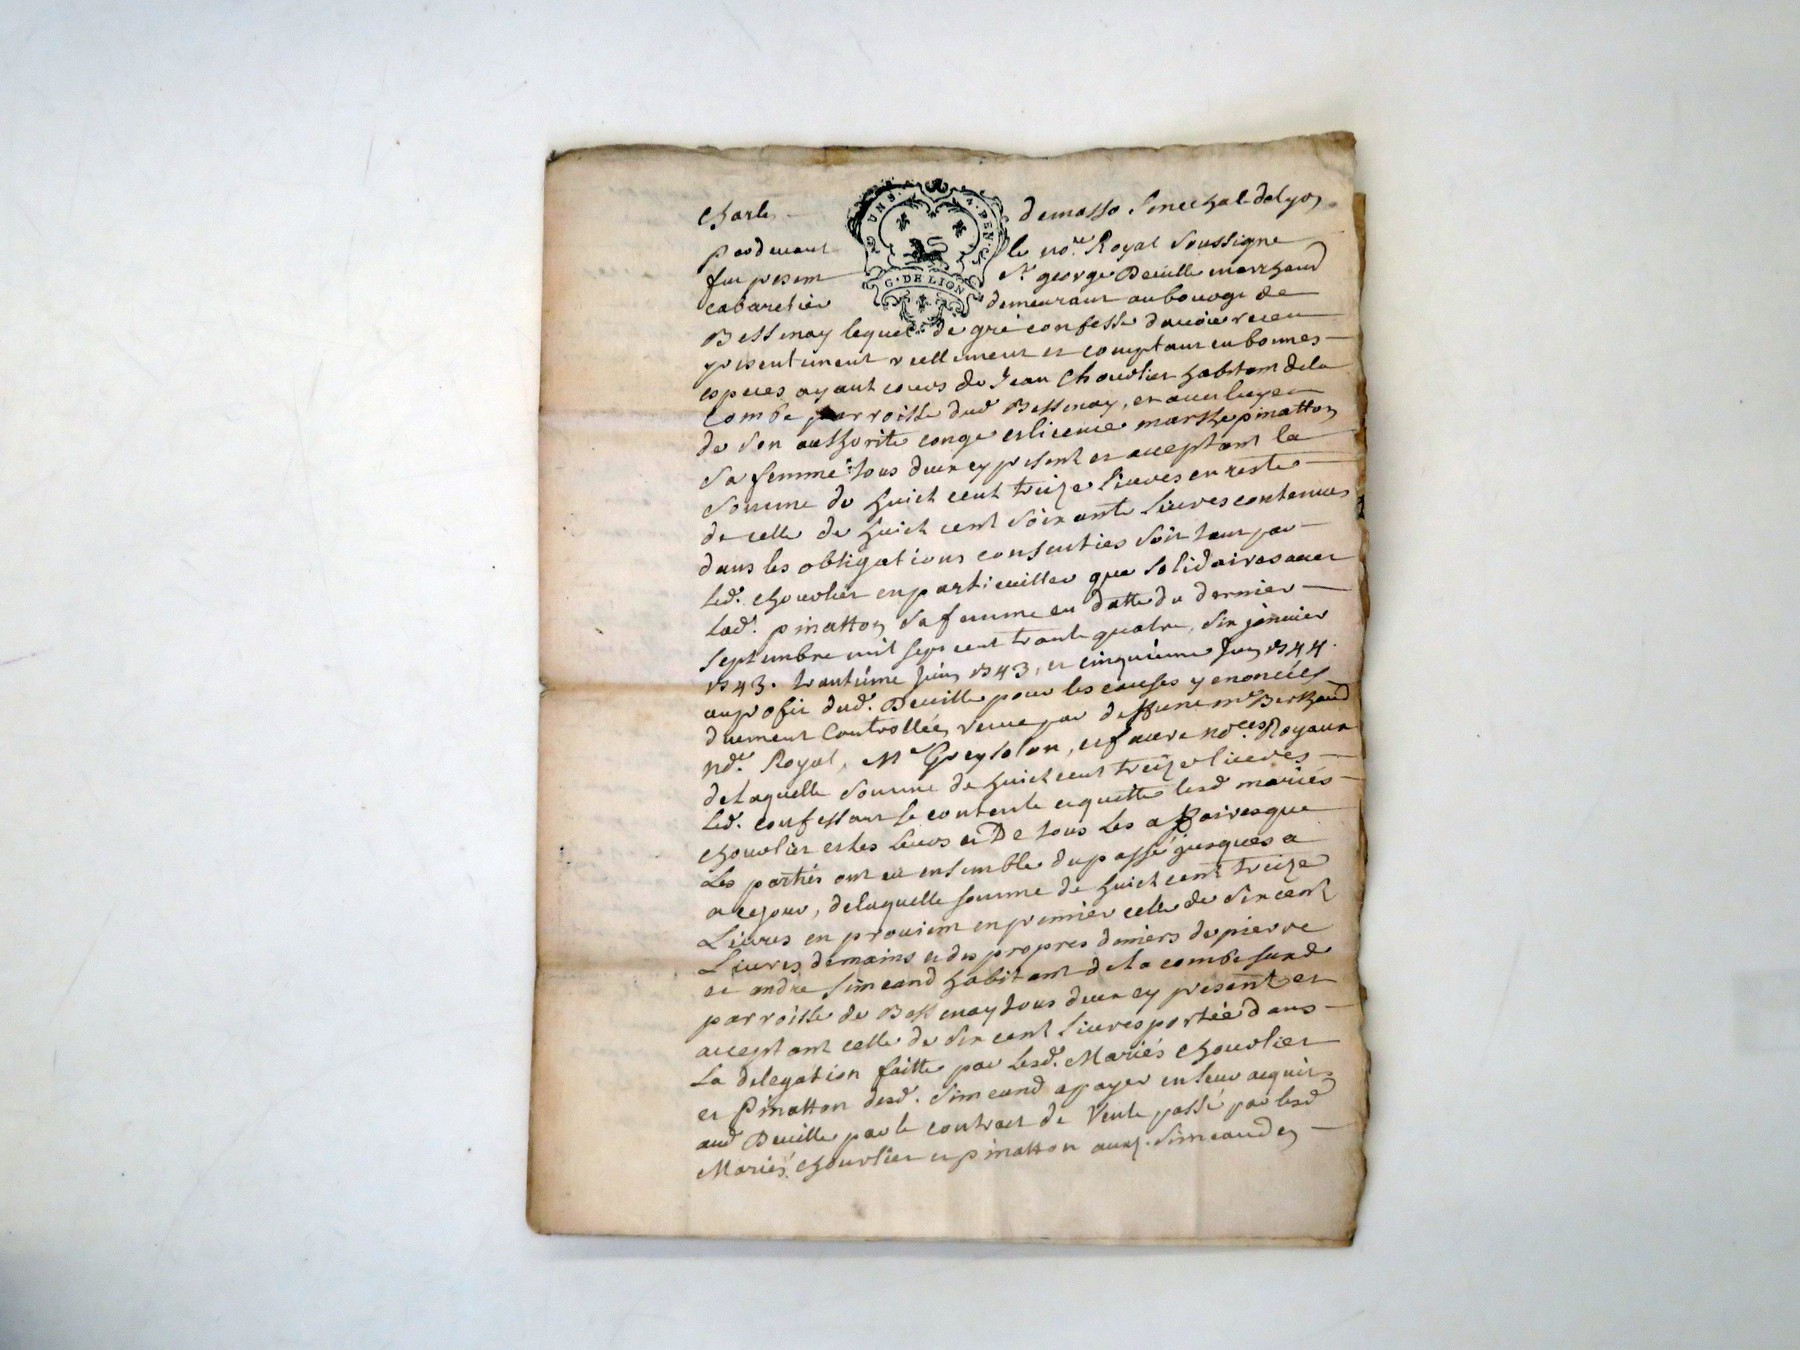 Charles demasso Senechal delyon
Pardevant le no.re Royal Soussigne
fut present Sr george Deville marchand
cabaretier demeurant aubourg de
Bessenay lequel de gré confesse dauoir receu
presentement reellement et comptant en bonnes
especes ayant cours de Jean Chouvlier habitant dela
Combe parroisse dud Bessenay, et avec luy et
de son authorite conge et licence marthe pinatton
Sa femme tous deux cy present et acceptant la
Somme de huict cent treize liures en reste
de celle de huict cent soixante liures contenues
dans les obligations consenties soit tant par
led. chouvlier en particuillier que solidaires avec
lad. pinatton Sa femme en datte du dernier
Septembre mil sept cent trante quatre, six janvier
1743. trantième juin 1743, et cinquieme juin 1744.
au profit dud. Deville pour les causes y enoncées
duement Controllées, reçue par deffunt me Berthaud
no.re Royal, Me Greysolon, et faure no.res Royaux
de laquelle Somme de huict cent treize liures
led. confessant se contente et quitte lesd mariés
chouvlier et les leurs et De tous les affaires que
Les parties ont eu ensemble du passé jusques a
a ce jour, de laquelle somme de huict cent treize
Livres en provient en premier celle de six cent
Livres demains et des propres deniers de pierre
et andre Simeand habitant de la combe susd
parroisse de Bessenay tous deux cy present et
acceptant celle de six cent liures portée dans
La delegation faitte par lesd. Mariés chouvlier
et Pinatton desd. Simeand a payer en leur acquit
aud Deville par le contract de Vente passé par lesd
Mariés chouvlier et pinatton auxd. Simeand en